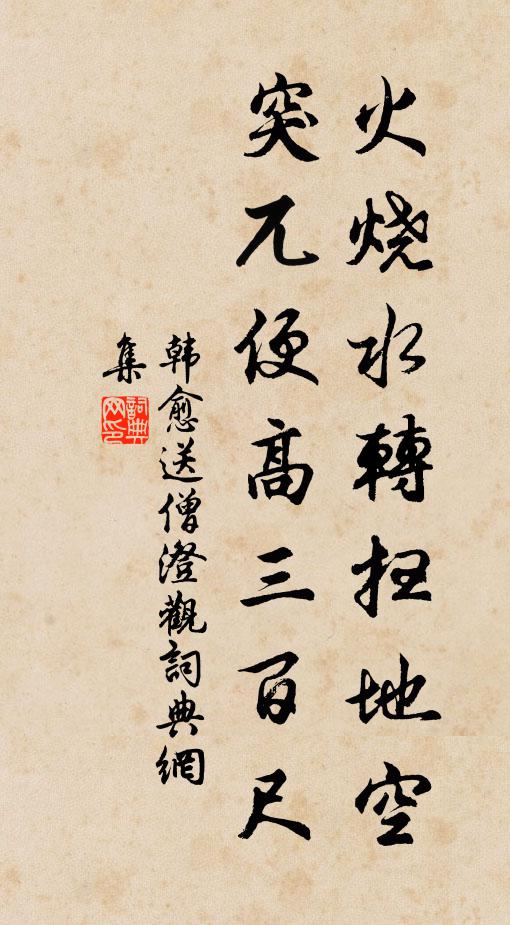 火烧水轉扫地空
突兀便高三百尺
韩愈送僧澄觀詞典網
集
詞典網印